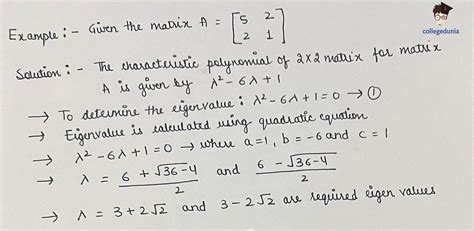 collegedunia
Example :- Given the matrix A = [5 2
2 1]
Solution :- The characteristic polynomial of 2x2 matrix for matrix
A is given by λ² - 6λ + 1
→ To determine the eigenvalue : λ² - 6λ + 1 = 0 → ①
→ Eigenvalue is calculated using quadratic equation
→ λ² - 6λ + 1 = 0 → where a = 1, b = -6 and c = 1
→ λ = (6 + √36-4)/2 and (6 - √36-4)/2
→ λ = 3 + 2√2 and 3 - 2√2 are required eigen values